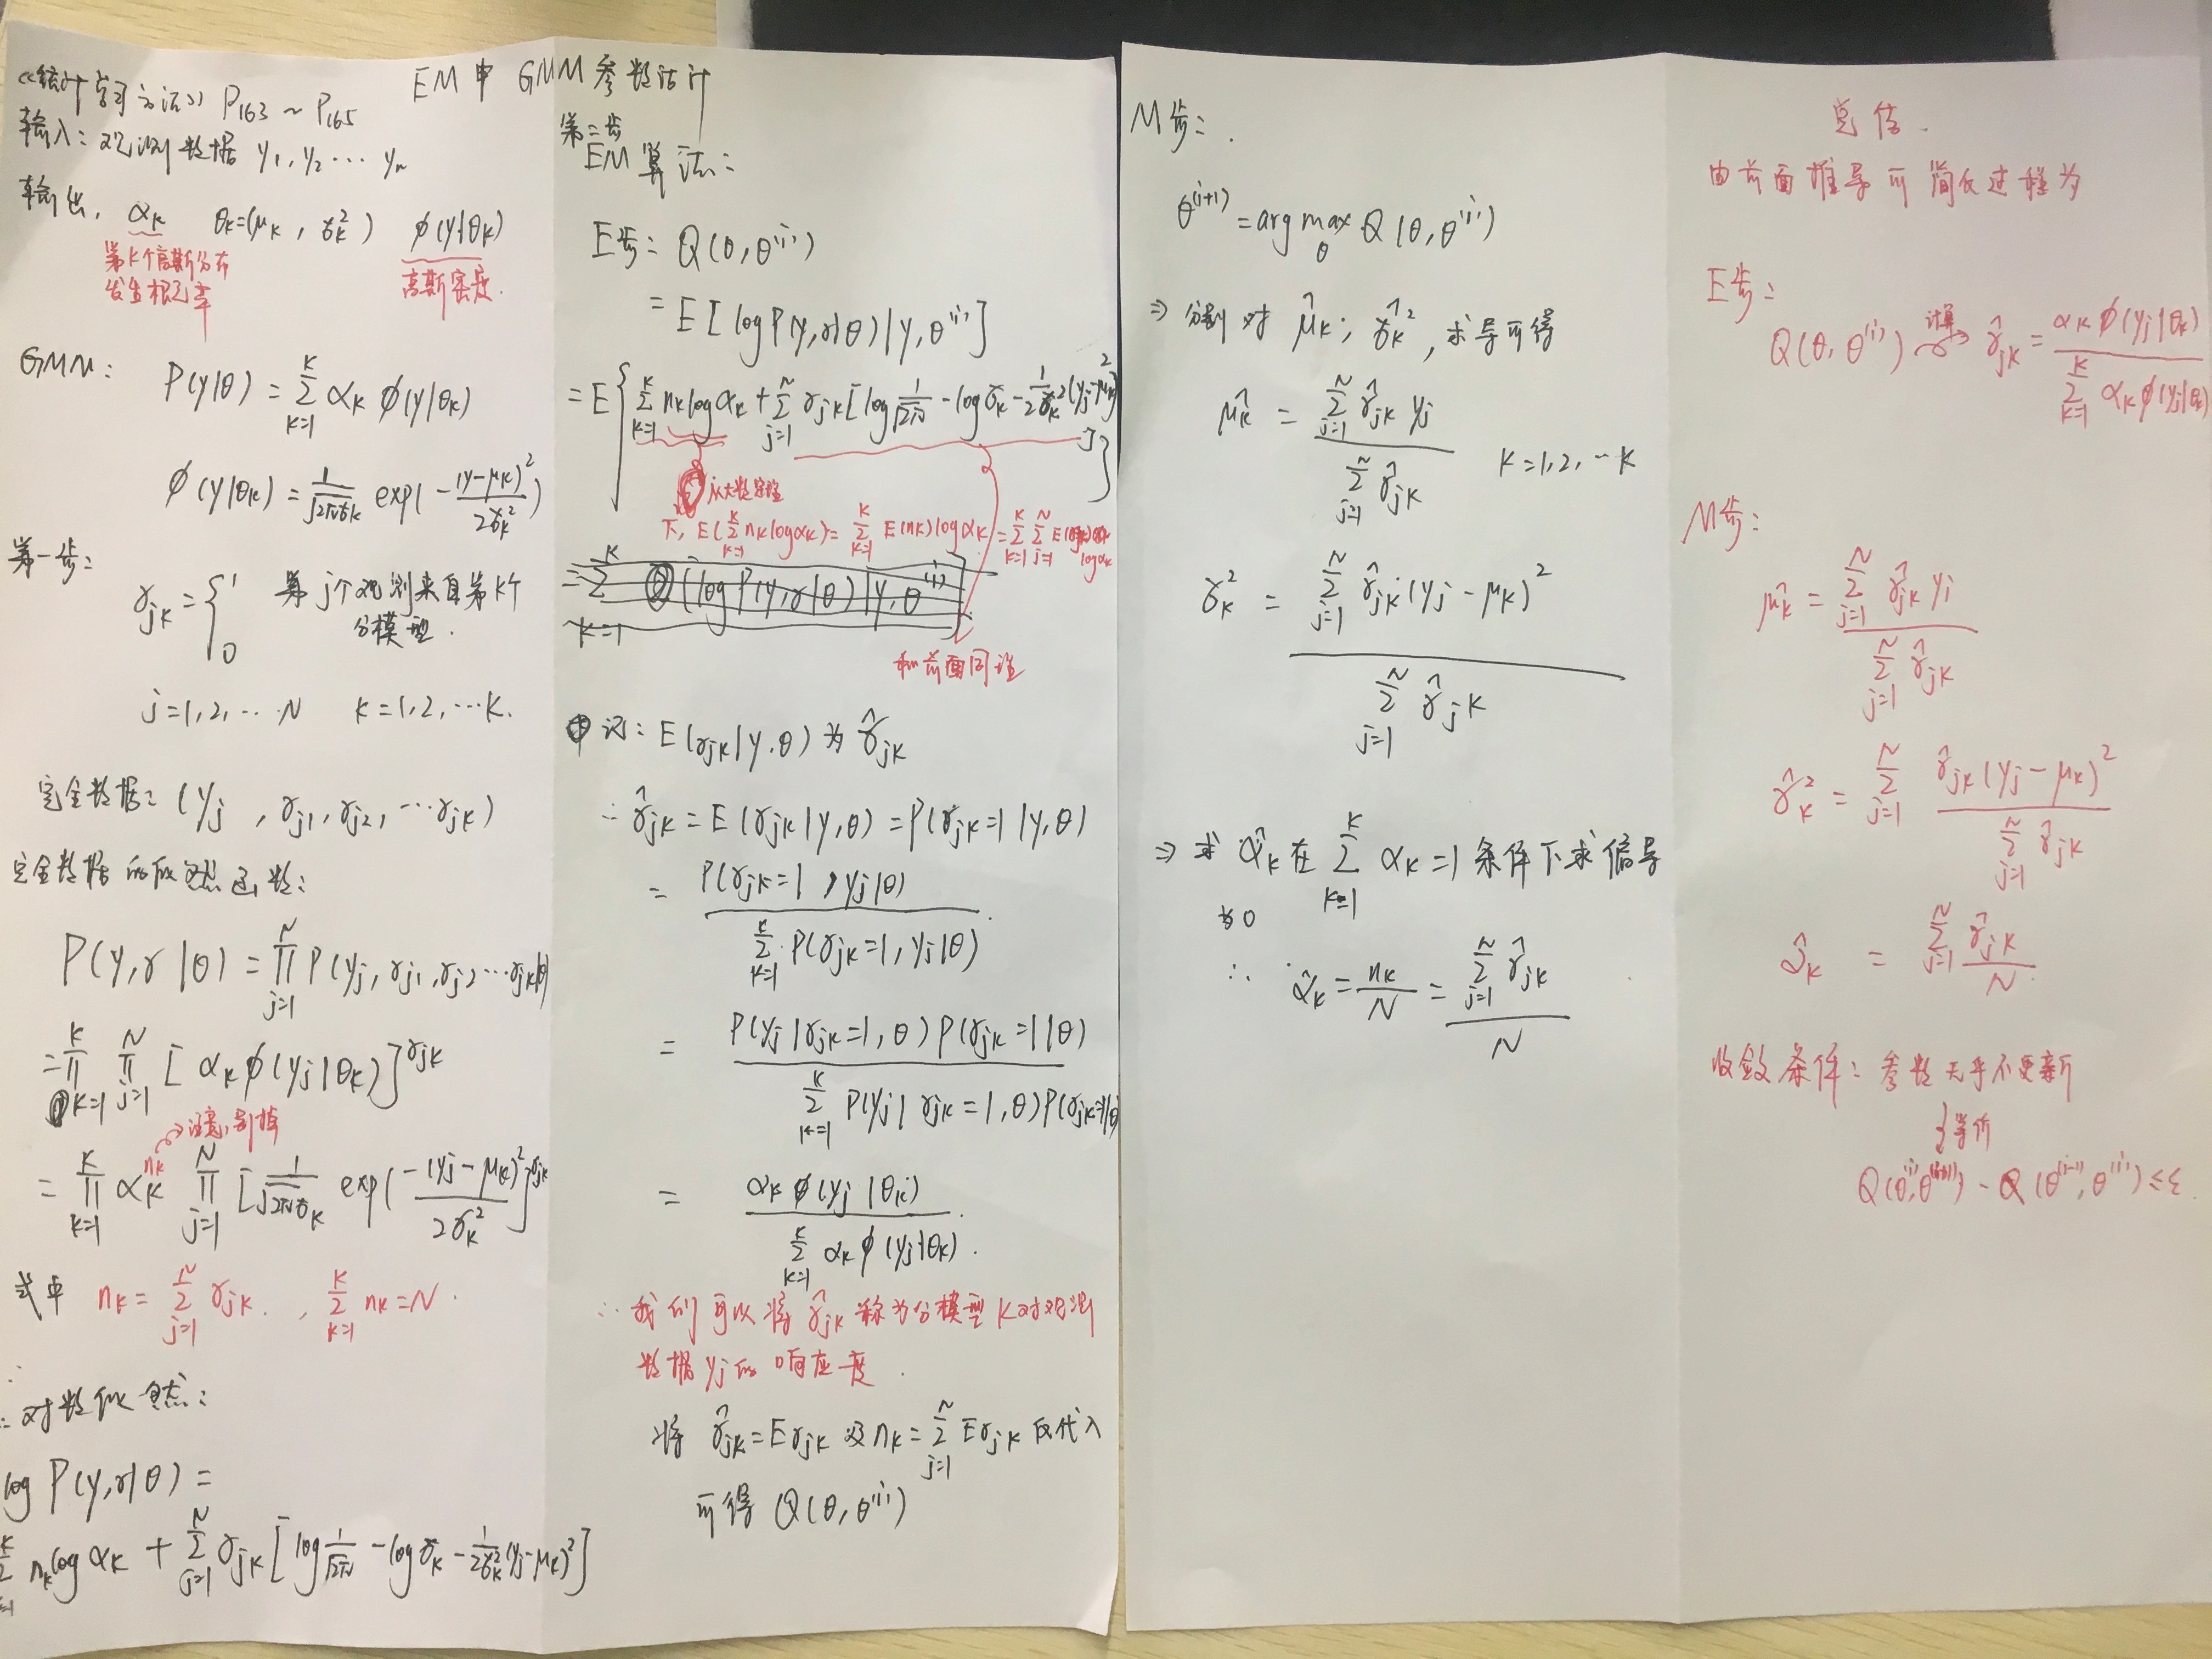 EM中 GMM参数估计
《统计学习方法》 P163 ~ P165
输入: 观测数据 y1, y2 ... yn
输出, αk θk=(μk, γk²) φ(y|θk)
第k个高斯分布
发生概率
高斯密度.
GMM: P(y|θ) = Σ_{k=1}^{K} αk φ(y|θk)
φ(y|θk) = 1/(√2π γk) exp(- (y-μk)²/2γk²)
第一步:
γjk = { 1 第j个观测来自第k个
分模型.
0
j=1,2,...N k=1,2,...K.
完全数据: (yj, γj1, γj2, ...γjk)
完全数据的似然函数:
P(y,γ|θ) = Π_{j=1}^{N} P(yj, γj1, γj2 ...γjk|θ)
= Π_{k=1}^{K} Π_{j=1}^{N} [αk φ(yj|θk)]^{γjk}
注意,别掉
= Π_{k=1}^{K} αk^{nk} Π_{j=1}^{N} [1/(√2π γk) exp(-(yj-μk)²/2γk²)]^{γjk}
式中 nk = Σ_{j=1}^{N} γjk. , Σ_{k=1}^{K} nk = N.
∴ 对数似然:
log P(y,γ|θ) =
Σ_{k=1}^{K} nk log αk + Σ_{j=1}^{N} γjk [log 1/√2π - log γk - 1/2γk² (yj-μk)²]
第二步
EM算法:
E步: Q(θ, θ^(i))
= E[log P(y,γ|θ)|y, θ^(i)]
= E{Σ_{k=1}^{K} nk log αk + Σ_{j=1}^{N} γjk [log 1/√2π - log γk - 1/2γk² (yj-μk)²]}
从大数定理
下, E(Σ_{k=1}^{K} nk log αk) = Σ_{k=1}^{K} E(nk) log αk = Σ_{k=1}^{K} Σ_{j=1}^{N} E(γjk) log αk
= Σ_{k=1}^{K} Q(log P(y,γ|θ)|y, θ^(i))
和前面同理
记: E(γjk|y,θ) 为 γ̂jk
∴ γ̂jk = E(γjk|y,θ) = P(γjk=1|y,θ)
= P(γjk=1, yj|θ) / Σ_{k=1}^{K} P(γjk=1, yj|θ)
= P(yj|γjk=1,θ)P(γjk=1|θ) / Σ_{k=1}^{K} P(yj|γjk=1,θ)P(γjk=1|θ)
= αk φ(yj|θk) / Σ_{k=1}^{K} αk φ(yj|θk).
∴ 我们可以将 γ̂jk 称为分模型k对观测
数据yj的响应度.
将 γ̂jk = Eγjk 及 nk = Σ_{j=1}^{N} Eγjk 反代入
可得 Q(θ, θ^(i))
M步:.
θ^(i+1) = arg max_θ Q(θ, θ^(i))
⇒ 分别对 μ̂k, γ̂k², 求导可得
μ̂k = Σ_{j=1}^{N} γ̂jk yj / Σ_{j=1}^{N} γ̂jk k=1,2,...K
γk² = Σ_{j=1}^{N} γ̂jk (yj-μk)² / Σ_{j=1}^{N} γ̂jk
⇒ 求 α̂k 在 Σ_{k=1}^{K} αk=1 条件下求偏导
为0
∴ α̂k = nk/N = Σ_{j=1}^{N} γ̂jk / N
总结.
由前面推导可简化过程为
E步:
Q(θ, θ^(i)) 计算→ γ̂jk = αk φ(yj|θk) / Σ_{k=1}^{K} αk φ(yj|θk)
M步:
μ̂k = Σ_{j=1}^{N} γ̂jk yj / Σ_{j=1}^{N} γ̂jk
γ̂k² = Σ_{j=1}^{N} γ̂jk (yj-μk)² / Σ_{j=1}^{N} γ̂jk
α̂k = Σ_{j=1}^{N} γ̂jk / N.
收敛条件: 参数几乎不更新
等价
Q(θ^(i), θ^(i+1)) - Q(θ^(i-1), θ^(i)) ≤ ε